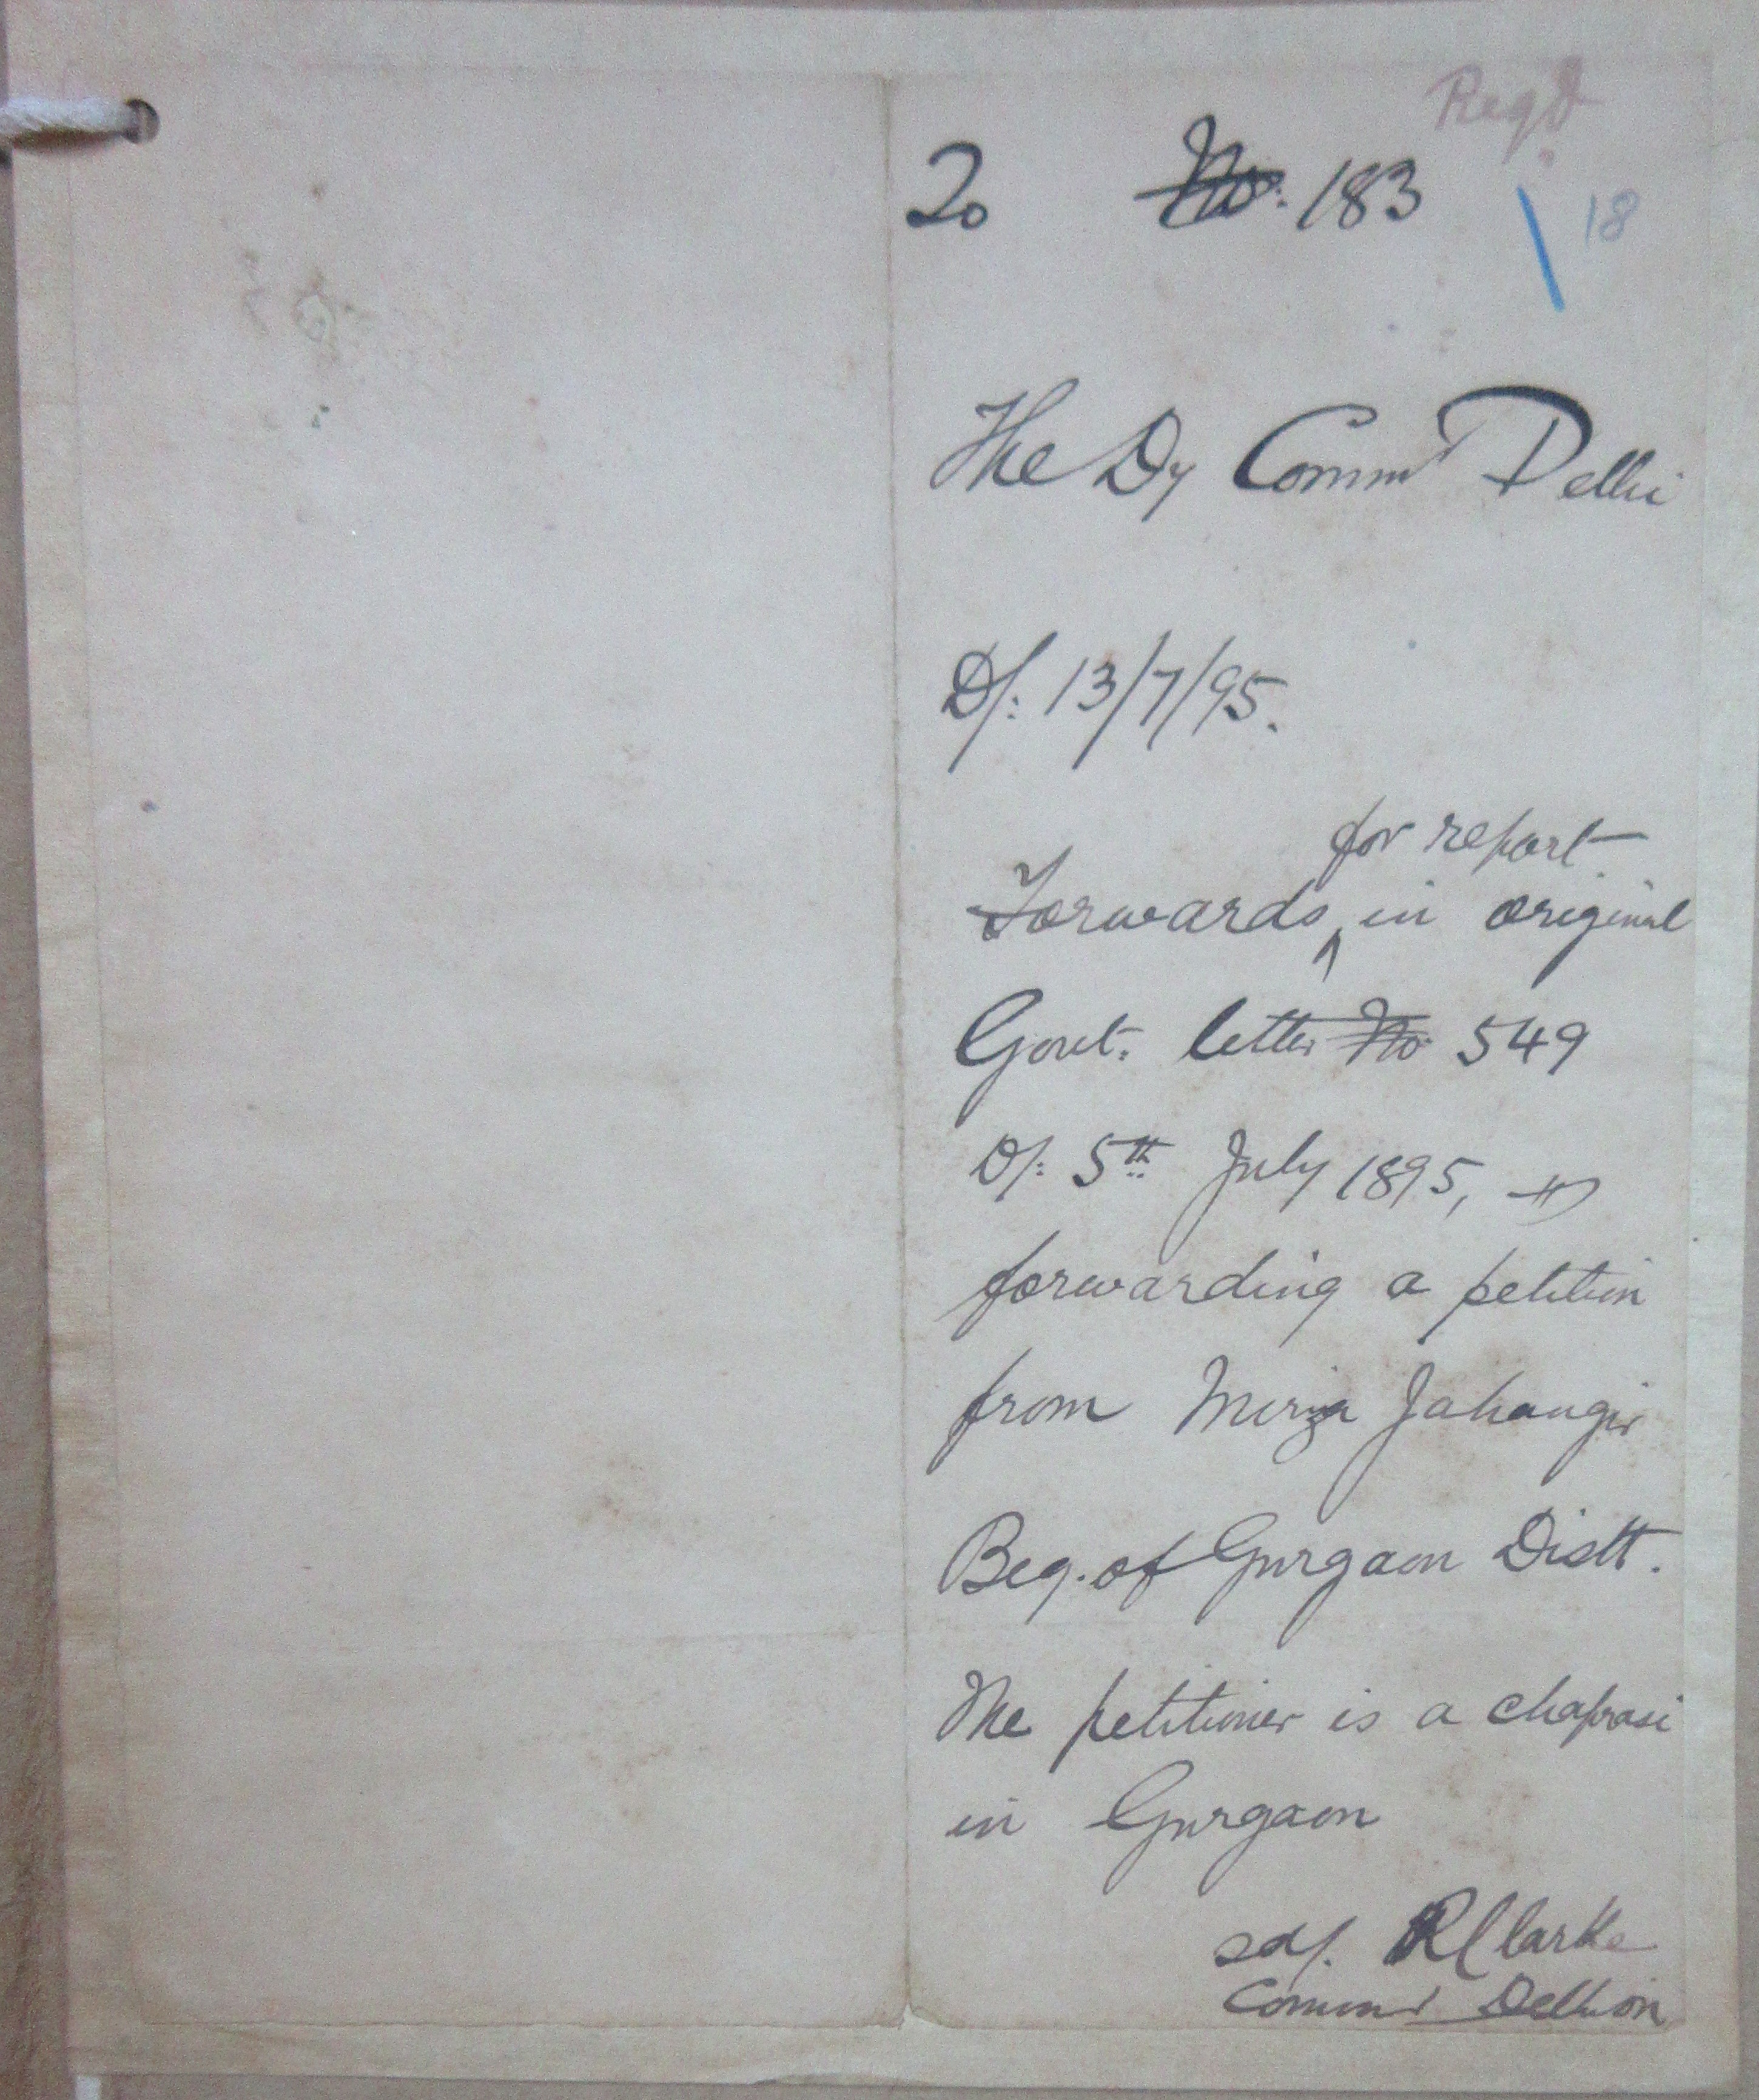 Regd
20 No. 183 18
The Dy Commr Delhi
D/: 13/7/95.
for report
Forwards in original
Govt. letter No 549
D/: 5th July 1895,
forwarding a petition
from Mirza Jahangir
Beg. of Gurgaon Distt.
The petitioner is a chaprasi
in Gurgaon
sd/. R Clarke
Commr Delhi